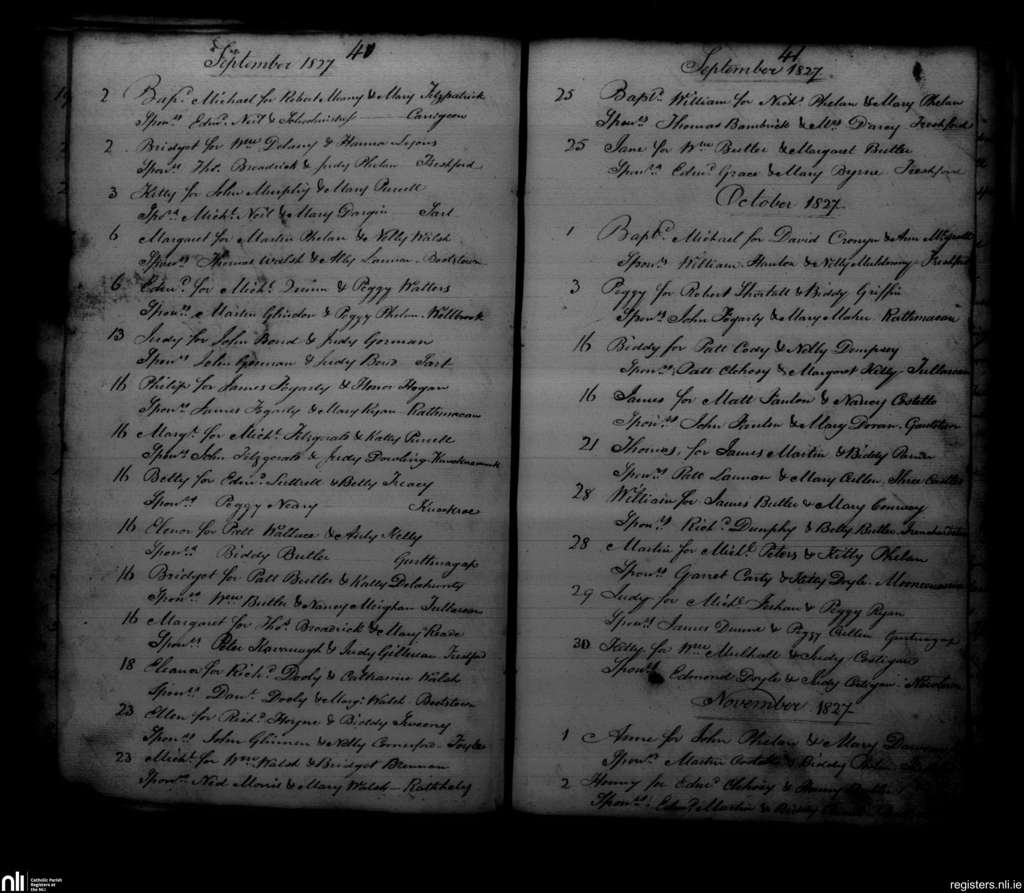 40
September 1827
2 Bapd. Michael for Robert Meany & Mary Fitzpatrick
Sponrs. Edwd. Neil & Canigeen
2 Bridget for Wm. Delany & Hanna Lyons
Sponrs. Thos. Broadrick & Judy Phelan Freshford
3 Kitty for John Murphy & Mary Purcell
Sponrs. Michl. Neil & Mary Dargin Tart
6 Margaret for Martin Phelan & Nelly Walsh
Sponrs. Thomas Walsh & Ally Lannan Bootstown
6 Edwd. for Michl. Quinn & Peggy Walters
Sponrs. Martin & Peggy Phelan Willbrook
13 Judy for John Bond & Judy Gorman
Sponrs. John Gorman & Judy Bond Tart
16 Philip for James Fogarty & Honor Hogan
Sponrs. James Fogarty & Mary Ryan Rathmacan
16 Margt. for Michl. Fitzgerald & Katty Purcell
Sponrs. John Fitzgerald & Judy Dowling
16 Betty for Edwd. Luttrell & Betty Treacy
Sponrs. Peggy Neary Knockroe
16 Elenor for Patt Wallace & Kelly
Sponrs. Biddy Butler
16 Bridget for Patt Butler & Katty Delahunty
Sponrs. Wm. Butler & Nancy Meighan Tullaroan
16 Margaret for Thos. Broadrick & Mary Reade
Sponrs. Peter Kavanagh & Judy Freshford
18 Eleanor for Richd. Dooly & Catharine Walsh
Sponrs. Danl. Dooly & Margt. Walsh Bootstown
23 Ellen for Richd. Hoyne & Biddy Sweeny
Sponrs. John & Nelly Comerford
23 Michl. for Wm. Walsh & Bridget Brennan
Sponrs. Ned Morris & Mary Walsh Rathbeley
41
September 1827
25 Bapt. William for Nichs. Phelan & Mary Phelan
Sponrs. Thomas Bambrick & Mrs. Darcey Freshford
25 Jane for Wm. Butler & Margaret Butler
Sponrs. Edwd. Grace & Mary Byrne Freshford
October 1827
1 Bapd. Michael for David Cronyn & Ann
Sponrs. William Hanlon & Nelly Muldowny Freshford
3 Peggy for Robert Shortall & Biddy Griffin
Sponrs. John Fogarty & Mary Maher Rathmacan
16 Biddy for Patt Cody & Nelly Dempsey
Sponrs. Patt Clohosy & Margaret Kelly Tullaroan
16 James for Matt & Nancy Costello
Sponrs. John & Mary Doran
21 Thomas for James Martin & Biddy
Sponrs. Patt Lannan & Mary Cullen Three Castles
28 William for James Butler & Mary Conway
Sponrs. Richd. Dunphy & Betty Butler
28 Martin for Michl. Peters & Kitty Phelan
Sponrs. Garret Carty & Kitty Doyle
29 Judy for Michl. & Peggy Ryan
Sponrs. James Dunne & Peggy Cullen
30 Kitty for Wm. Mulhall & Judy Costigan
Sponrs. Edmond Doyle & Judy Costigan
November 1827
1 Anne for John Phelan & Mary
Sponrs. Martin Costello & Biddy
2 Honny for Edwd. Clohosy &
Sponrs. Edwd. Martin & Biddy
nli Catholic Parish
Registers at
the NLI
registers.nli.ie